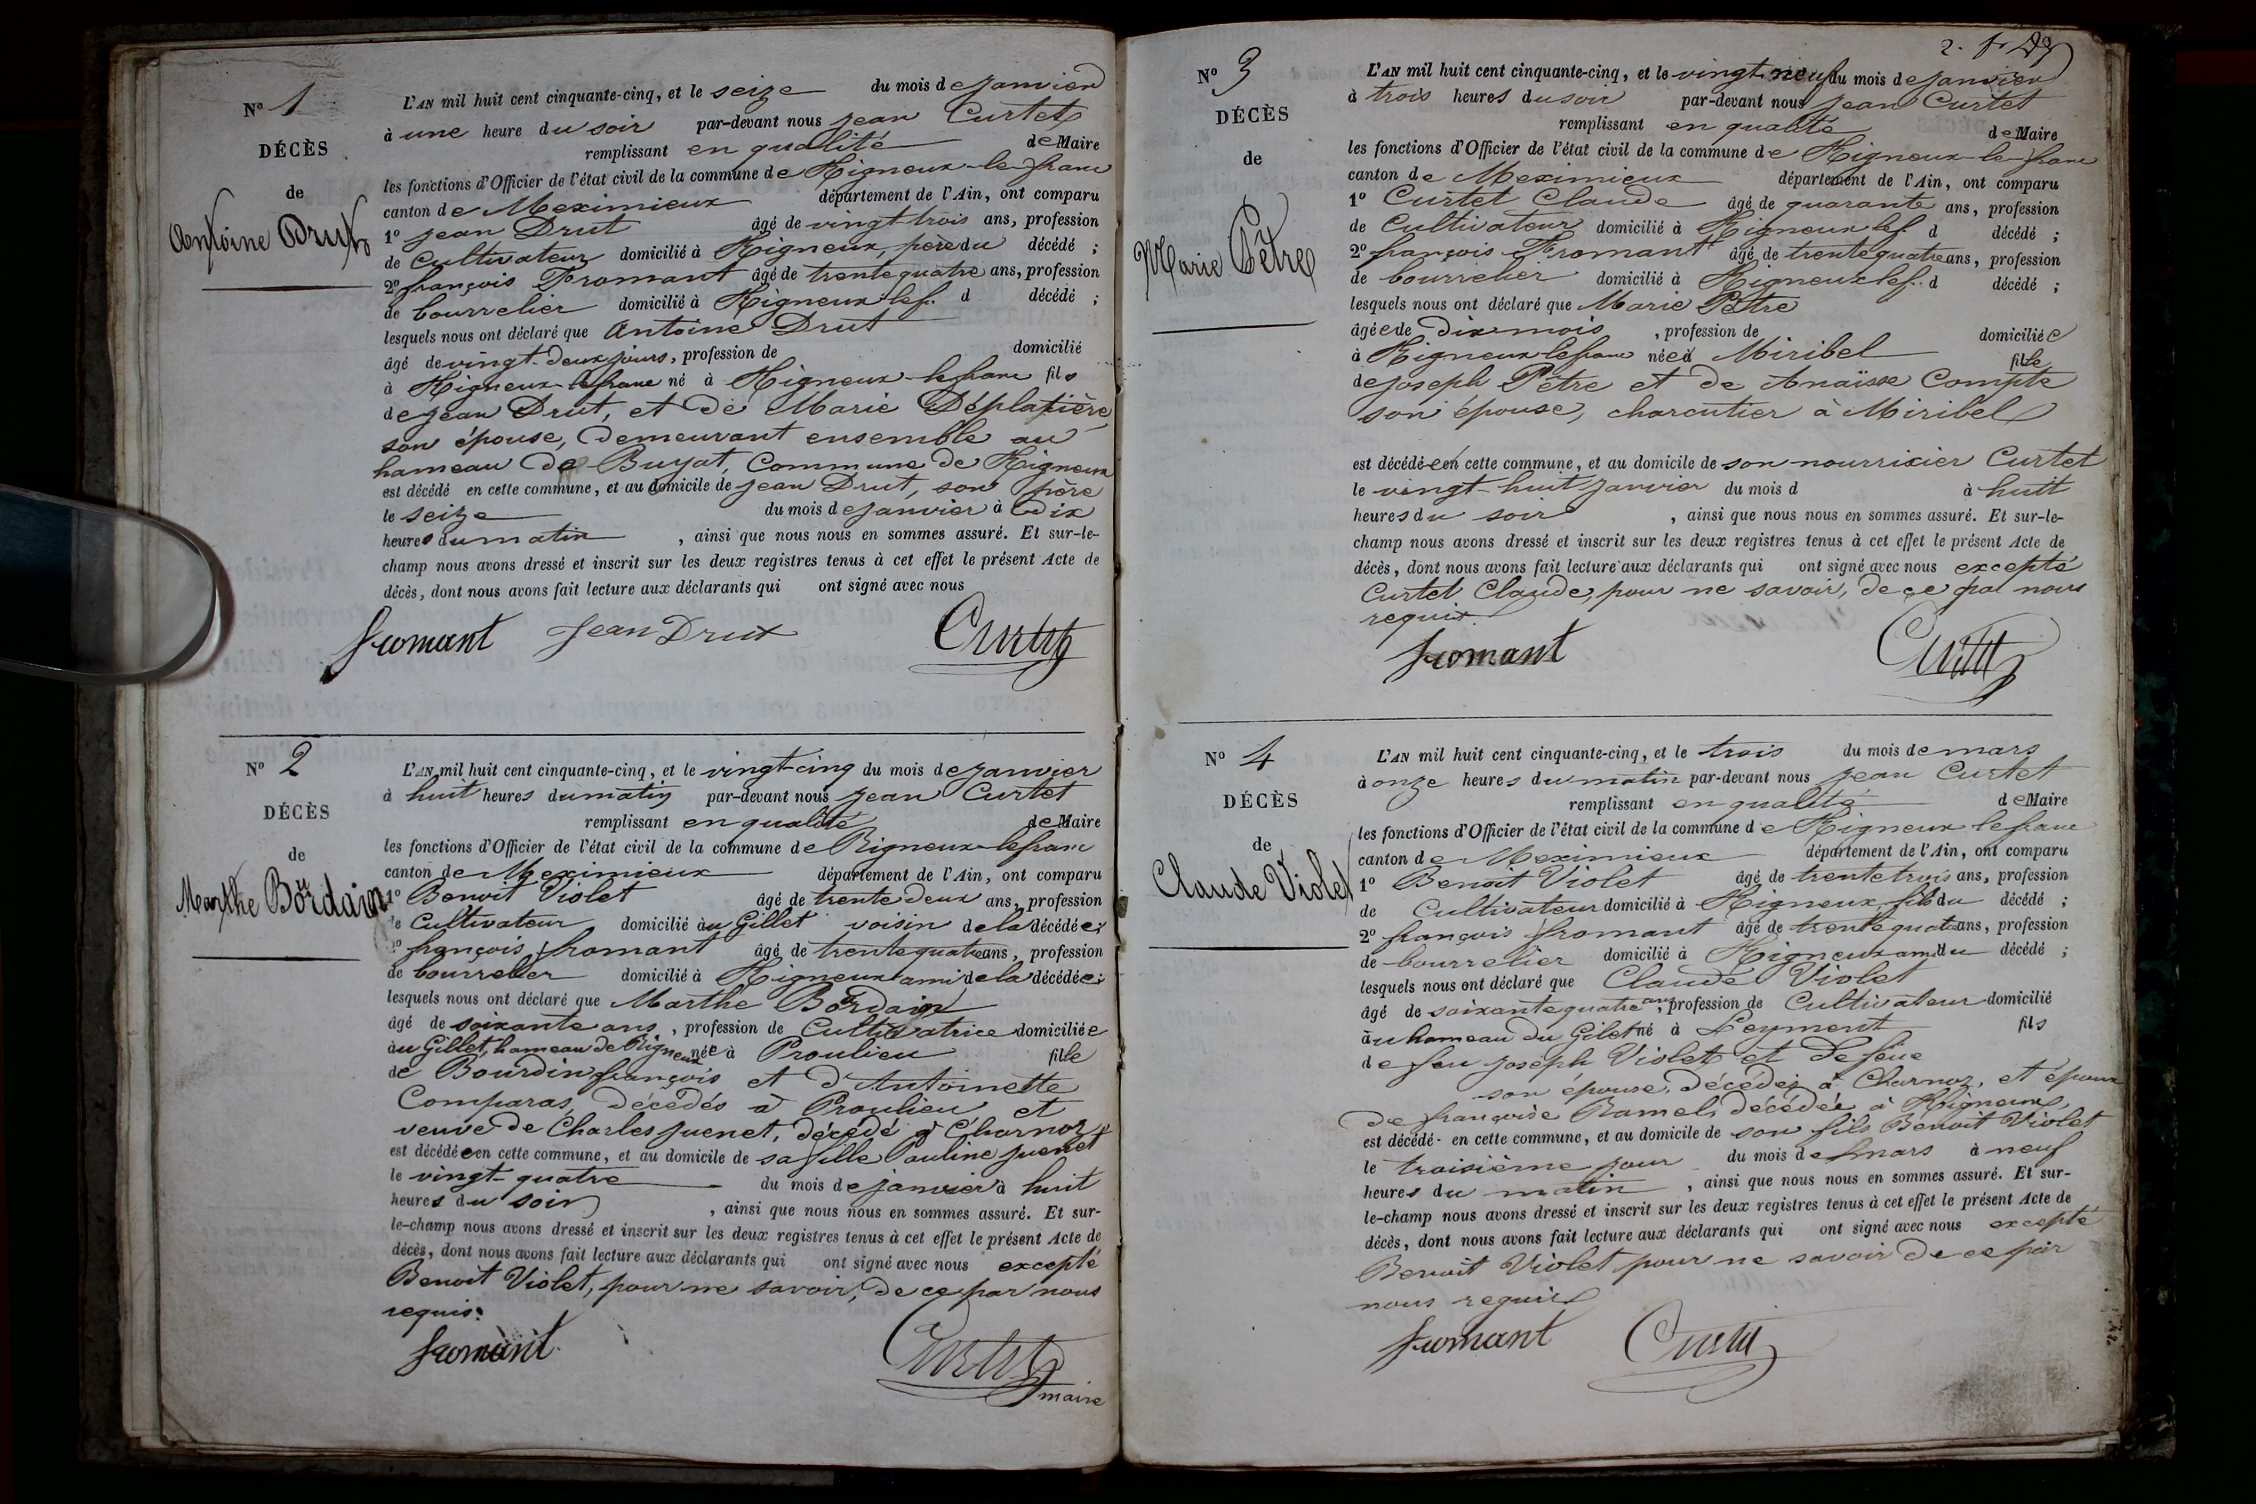 N° 1
DÉCÈS
de
Antoine Drut
L'AN mil huit cent cinquante-cinq, et le seize du mois de janvier
à une heure du soir par-devant nous jean Curtet
remplissant en qualité de Maire
les fonctions d'Officier de l'état civil de la commune de Rigneux-le-franc
canton de Meximieux département de l'Ain, ont comparu
1° jean Drut âgé de vingt trois ans, profession
de Cultivateur domicilié à Rigneux, père du décédé ;
2° françois Fromant âgé de trente quatre ans, profession
de bourrelier domicilié à Rigneux lef. d décédé ;
lesquels nous ont déclaré que Antoine Drut
âgé de vingt-deux jours, profession de domicilié
à Rigneux-lefranc né à Rigneux-lefranc fils
de jean Drut, et de Marie Déplatière
son épouse, demeurant ensemble au
hameau de Buyat, Commune de Rigneux
est décédé en cette commune, et au domicile de jean Drut, son père
le seize du mois de janvier à dix
heures du matin , ainsi que nous nous en sommes assuré. Et sur-le-
champ nous avons dressé et inscrit sur les deux registres tenus à cet effet le présent Acte de
décès, dont nous avons fait lecture aux déclarants qui ont signé avec nous
fromant Jean Drut Curtet
N° 2
DÉCÈS
de
Marthe Bourdin
L'AN mil huit cent cinquante-cinq, et le vingt-cinq du mois de janvier
à huit heures du matin par-devant nous jean Curtet
remplissant en qualité de Maire
les fonctions d'Officier de l'état civil de la commune de Rigneux-lefranc
canton de Meximieux département de l'Ain, ont comparu
1° Benoit Violet âgé de trente deux ans, profession
de Cultivateur domicilié au Gillet voisin de la décédée ;
2° françois fromant âgé de trente quatre ans, profession
de bourrelier domicilié à Rigneux ami de la décédée ;
lesquels nous ont déclaré que Marthe
âgé de soixante ans, profession de Cultivatrice domiciliée
au Gillet, hameau de Rigneux née à Proulieu fille
de Bourdin françois et d'Antoinette
Comparas, décédés à Proulieu et
veuve de Charles juenet, décédé à Charnoz
est décédée en cette commune, et au domicile de sa fille Pauline juenet
le vingt-quatre du mois de janvier à huit
heures du soir , ainsi que nous nous en sommes assuré. Et sur-
le-champ nous avons dressé et inscrit sur les deux registres tenus à cet effet le présent Acte de
décès, dont nous avons fait lecture aux déclarants qui ont signé avec nous excepté
Benoit Violet, pour ne savoir, de ce par nous
requis.
fromant Curtet
maire
N° 3
DÉCÈS
de
Marie Pètre
L'AN mil huit cent cinquante-cinq, et le vingt-neuf du mois de janvier
à trois heures du soir par-devant nous jean Curtet
remplissant en qualité de Maire
les fonctions d'Officier de l'état civil de la commune de Rigneux-le-franc
canton de Meximieux département de l'Ain, ont comparu
1° Curtet Claude âgé de quarante ans, profession
de Cultivateur domicilié à Rigneux lef. d décédé ;
2° françois Fromant âgé de trente quatre ans, profession
de bourrelier domicilié à Rigneux lef. d décédé ;
lesquels nous ont déclaré que Marie Pètre
âgée de dix mois , profession de domiciliée
à Rigneux lefranc née à Miribel fille
de joseph Pètre et de Anaïsse Compte
son épouse, charcutier à Miribel
est décédée en cette commune, et au domicile de son nourricier Curtet
le vingt-huit janvier du mois d à huit
heures du soir , ainsi que nous nous en sommes assuré. Et sur-le-
champ nous avons dressé et inscrit sur les deux registres tenus à cet effet le présent Acte de
décès, dont nous avons fait lecture aux déclarants qui ont signé avec nous excepté
Curtet Claude, pour ne savoir, de ce par nous
requis.
fromant Curtet
N° 4
DÉCÈS
de
Claude Violet
L'AN mil huit cent cinquante-cinq, et le trois du mois de mars
à onze heures du matin par-devant nous jean Curtet
remplissant en qualité de Maire
les fonctions d'Officier de l'état civil de la commune de Rigneux lefranc
canton de Meximieux département de l'Ain, ont comparu
1° Benoit Violet âgé de trente trois ans, profession
de Cultivateur domicilié à Rigneux, fils du décédé ;
2° françois fromant âgé de trente quatre ans, profession
de bourrelier domicilié à Rigneux ami du décédé ;
lesquels nous ont déclaré que Claude Violet
âgé de soixante quatre ans, profession de Cultivateur domicilié
au hameau du Gilet né à Leyment fils
de feu joseph Violet et de feüe
son épouse, décédés à Charnoz, et époux
de françoise Ramel, décédée à Rigneux,
est décédé en cette commune, et au domicile de son fils Benoit Violet
le troisième jour du mois de mars à neuf
heures du matin , ainsi que nous nous en sommes assuré. Et sur-
le-champ nous avons dressé et inscrit sur les deux registres tenus à cet effet le présent Acte de
décès, dont nous avons fait lecture aux déclarants qui ont signé avec nous excepté
Benoit Violet pour ne savoir de ce par
nous requis
fromant Curtet